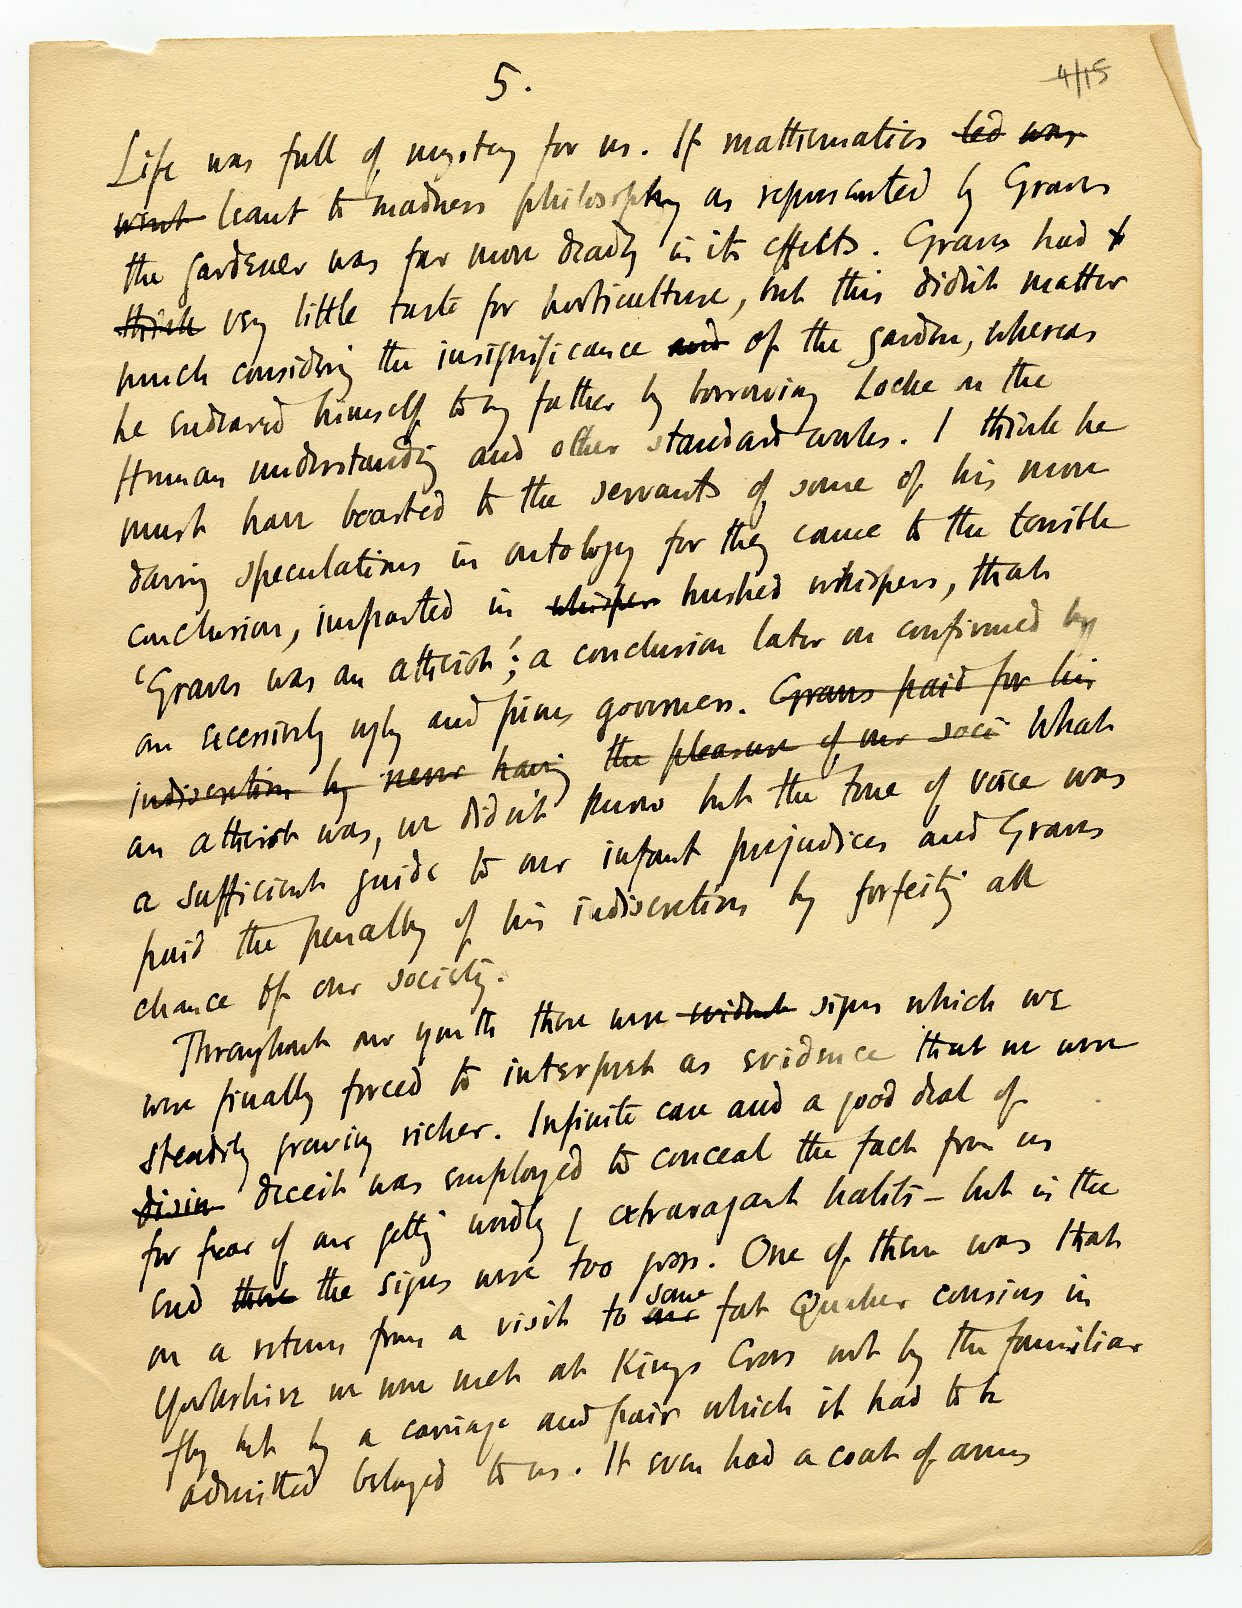 5.
4/15
Life was full of mystery for us. If mathematics led was
went leant to madness philosophy as represented by Graves
the gardener was far more deadly in its effects. Graves had
think very little taste for horticulture, but this didn't matter
much considering the insignificance and of the garden, whereas
he endeared himself to my father by borrowing Locke on the
Human understanding and other standard works. I think he
must have boasted to the servants of some of his more
daring speculations in ontology for they came to the terrible
conclusion, imparted in whispers hushed whispers, that
'Graves was an atheist'; a conclusion later on confirmed by
an excessively ugly and pious governess. Graves paid for his
indiscretion by never having the pleasure of our soci What
an atheist was, we didn't know but the tone of voice was
a sufficient guide to our infant prejudices and Graves
paid the penalty of his indiscretions by forfeiting all
chance of our society.
Throughout our youth there were evident signs which we
were finally forced to interpret as evidence that we were
steadily growing richer. Infinite care and a good deal of
disin deceit was employed to conceal the fact from us
for fear of our getting wordly extravagant habits – but in the
end there the signs were too gross. One of them was that
on a return from a visit to our some fat Quaker cousins in
Yorkshire we were met at Kings Cross not by the familiar
fly but by a carriage and pair which it had to be
admitted belonged to us. It even had a coat of arms